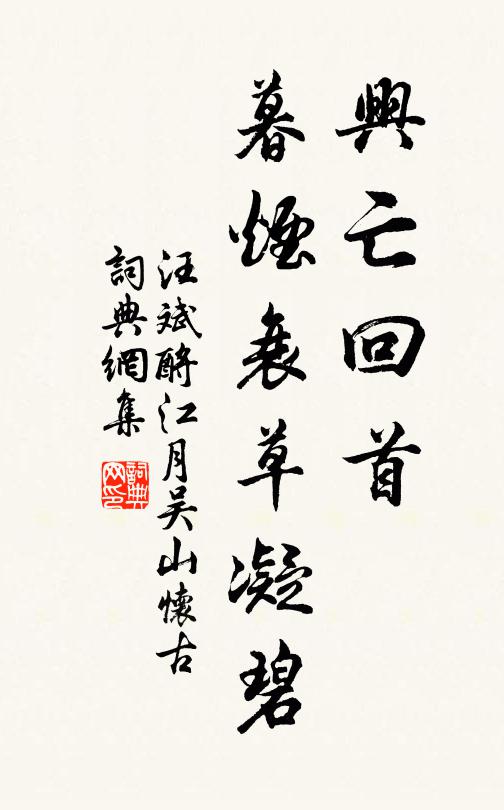 興亡回首
暮煙衰草凝碧
汪斌酹江月吳山懷古
詞典網集
詞典网印